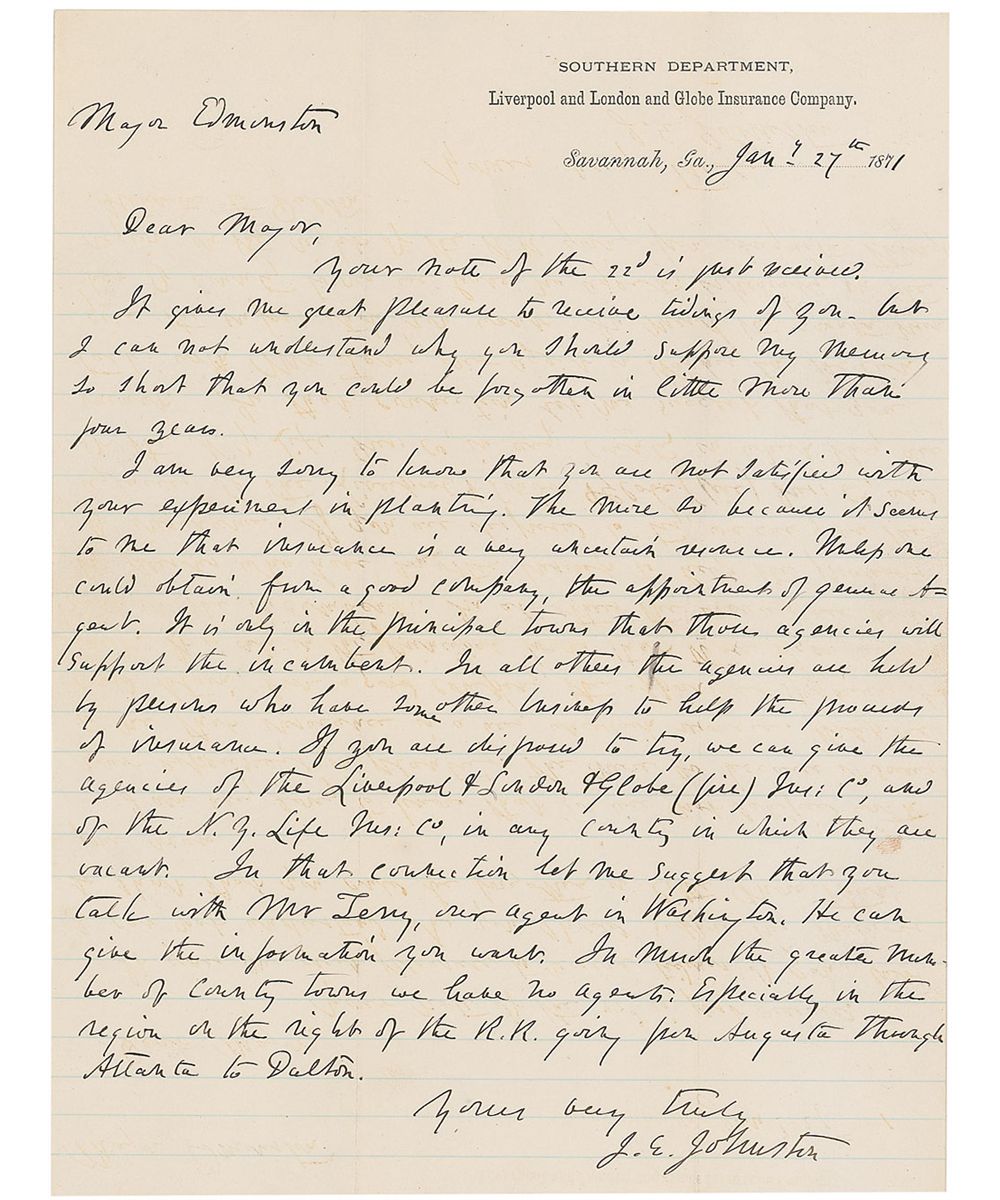 SOUTHERN DEPARTMENT,
Liverpool and London and Globe Insurance Company.
Major Edmonston
Savannah, Ga., Jany 27th 1871
Dear Major,
Your note of the 22d is just received.
It gives me great pleasure to receive tidings of you - but
I can not understand why you should suppose my memory
so short that you could be forgotten in little more than
four years.
I am very sorry to know that you are not satisfied with
your experiment in planting. The more so because it seems
to me that insurance is a very uncertain resource. Unless one
could obtain from a good company, the appointment of general A=
gent. It is only in the principal towns that those agencies will
support the incumbent. In all others the agencies are held
by persons who have some other business to help the proceeds
of insurance. If you are disposed to try, we can give the
agencies of the Liverpool & London & Globe (fire) Ins: Co, and
of the N.Y. Life Ins: Co, in any county in which they are
vacant. In that connection let me suggest that you
talk with Mr Terry, our agent in Washington. He can
give the information you want. In much the greater num-
ber of county towns we have no agents. Especially in the
region on the right of the R.R. going from Augusta through
Atlanta to Dalton.
Yours very truly
J. E. Johnston